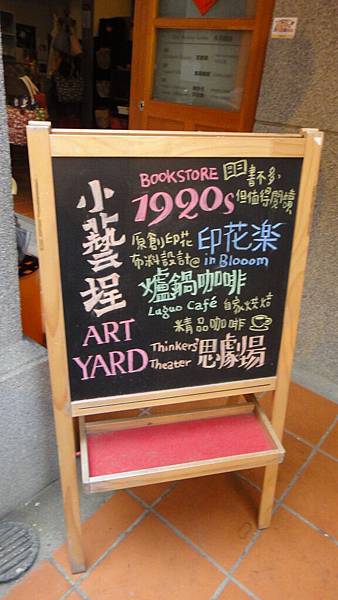 小藝埕
ART
YARD
BOOKSTORE
1920s
書不多,
但值得閱讀
原創印花
布料設計@
印花楽
in Blooom
爐鍋咖啡
Luguo Café
自家烘焙
精品咖啡
Thinkers'
Theater
思劇場